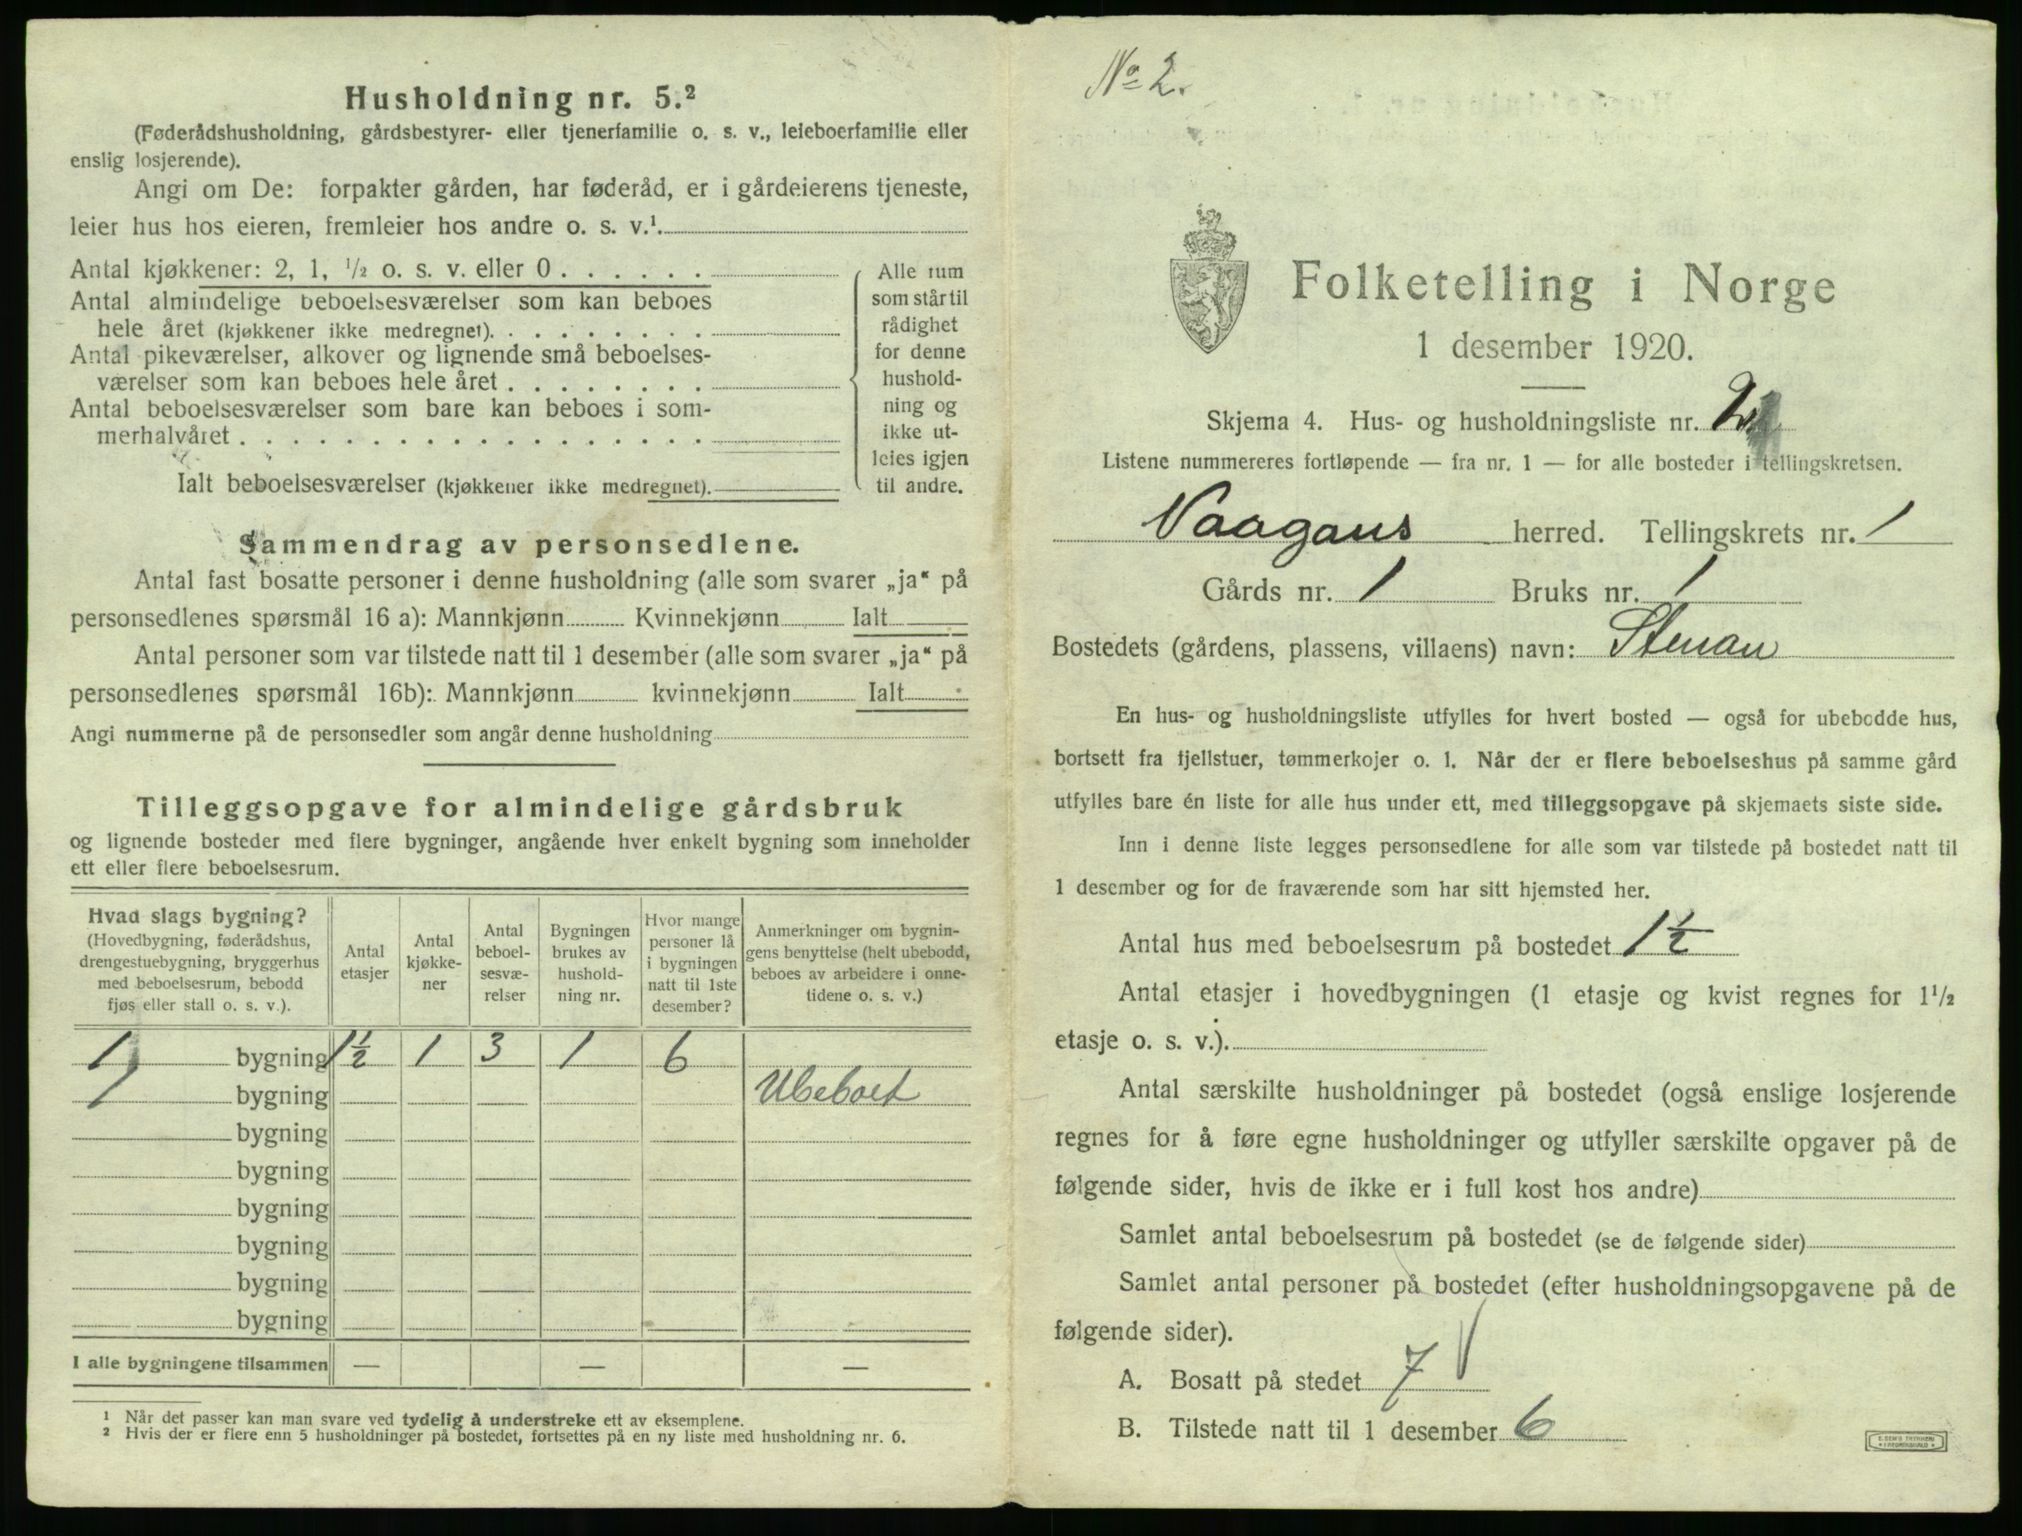 Husholdning nr. 5.²
(Føderådshusholdning, gårdsbestyrer- eller tjenerfamilie o. s. v., leieboerfamilie eller
enslig losjerende).
Angi om De: forpakter gården, har føderåd, er i gårdeierens tjeneste,
leier hus hos eieren, fremleier hos andre o. s. v.¹
Antal kjøkkener: 2, 1, ½ o. s. v. eller 0
Antal almindelige beboelsesværelser som kan beboes
hele året (kjøkkener ikke medregnet).
Antal pikeværelser, alkover og lignende små beboelses-
værelser som kan beboes hele året
Antal beboelsesværelser som bare kan beboes i som-
merhalvåret
Ialt beboelsesværelser (kjøkkener ikke medregnet).
Alle rum
som står til
rådighet
for denne
hushold-
ning og
ikke ut-
leies igjen
til andre.
Sammendrag av personsedlene.
Antal fast bosatte personer i denne husholdning (alle som svarer „ja“ på
personsedlenes spørsmål 16 a): Mannkjønn Kvinnekjønn Ialt
Antal personer som var tilstede natt til 1 desember (alle som svarer „ja“ på
personsedlenes spørsmål 16b): Mannkjønn kvinnekjønn Ialt
Angi nummerne på de personsedler som angår denne husholdning
Tilleggsopgave for almindelige gårdsbruk
og lignende bosteder med flere bygninger, angående hver enkelt bygning som inneholder
ett eller flere beboelsesrum.
Hvad slags bygning?
(Hovedbygning, føderådshus,
drengestuebygning, bryggerhus
med beboelsesrum, bebodd
fjøs eller stall o. s. v.).
Antal
etasjer
Antal
kjøkke-
ner
Antal
beboel-
sesvæ-
relser
Bygningen
brukes av
hushold-
ning nr.
Hvor mange
personer lå
i bygningen
natt til 1ste
desember?
Anmerkninger om bygnin-
gens benyttelse (helt ubebodd,
beboes av arbeidere i onne-
tidene o. s. v.)
1 bygning 1½ 1 3 1 6
1 bygning Ubeboet
bygning
bygning
bygning
bygning
bygning
bygning
I alle bygningene tilsammen — — —
¹ Når det passer kan man svare ved tydelig å understreke ett av eksemplene.
² Hvis der er flere enn 5 husholdninger på bostedet, fortsettes på en ny liste med husholdning nr. 6.
No 2.
Folketelling i Norge
1 desember 1920.
Skjema 4. Hus- og husholdningsliste nr. 2
Listene nummereres fortløpende — fra nr. 1 — for alle bosteder i tellingskretsen.
Vaagans herred. Tellingskrets nr. 1
Gårds nr. 1 Bruks nr. 1
Bostedets (gårdens, plassens, villaens) navn: Stenan
En hus- og husholdningsliste utfylles for hvert bosted — også for ubebodde hus,
bortsett fra fjellstuer, tømmerkojer o. l. Når der er flere beboelseshus på samme gård
utfylles bare én liste for alle hus under ett, med tilleggsopgave på skjemaets siste side.
Inn i denne liste legges personsedlene for alle som var tilstede på bostedet natt til
1 desember og for de fraværende som har sitt hjemsted her.
Antal hus med beboelsesrum på bostedet 1½
Antal etasjer i hovedbygningen (1 etasje og kvist regnes for 1½
etasje o. s. v.).
Antal særskilte husholdninger på bostedet (også enslige losjerende
regnes for å føre egne husholdninger og utfyller særskilte opgaver på de
følgende sider, hvis de ikke er i full kost hos andre)
Samlet antal beboelsesrum på bostedet (se de følgende sider)
Samlet antal personer på bostedet (efter husholdningsopgavene på de
følgende sider).
A. Bosatt på stedet 7
B. Tilstede natt til 1 desember 6